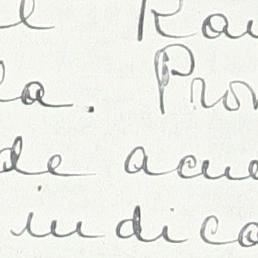 e Rau
la. Pron
de acue
indica